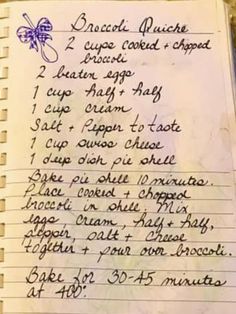 Broccoli Quiche
2 cups cooked + chopped
broccoli
2 beaten eggs
1 cup half + half
1 cup cream
Salt + Pepper to taste
1 cup swiss cheese
1 deep dish pie shell
Bake pie shell 10 minutes.
Place cooked + chopped
broccoli in shell. Mix
eggs cream, half + half,
pepper, salt + cheese
together + pour over broccoli.
Bake for 30-45 minutes
at 400°.